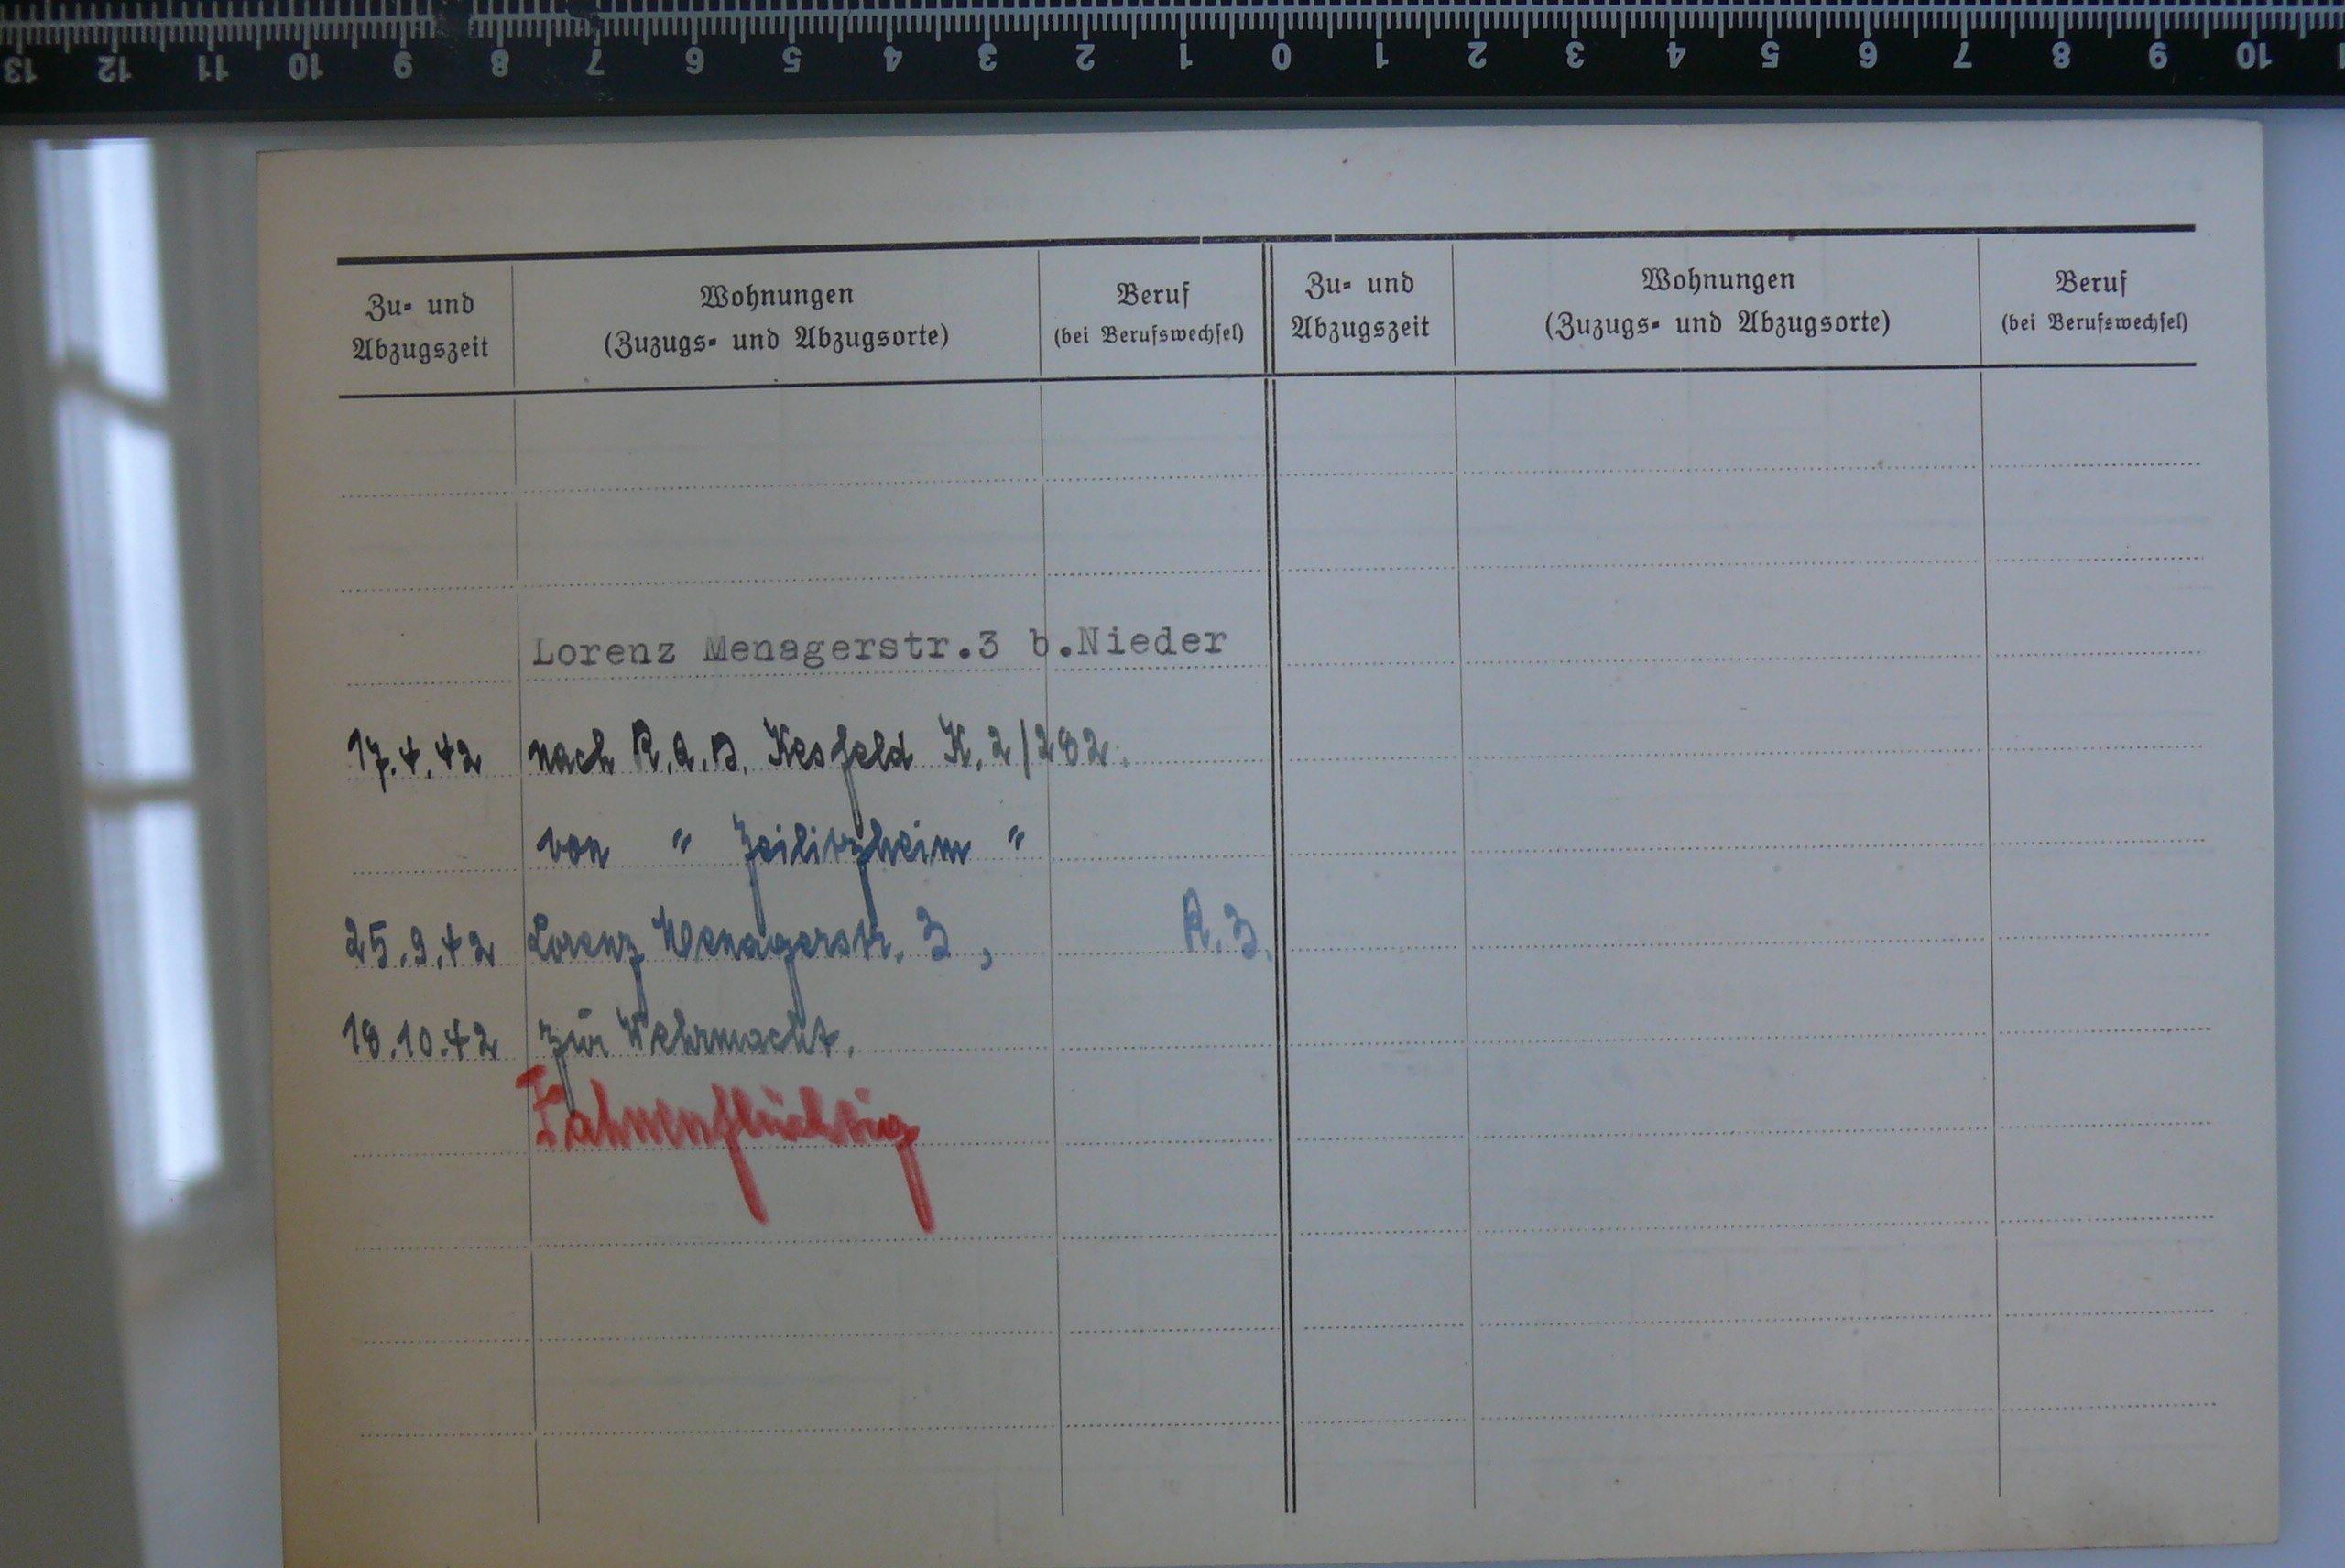 13 12 11 10 9 8 7 6 5 4 3 2 1 0 1 2 3 4 5 6 7 8 9 10
Zu- und Abzugszeit
Wohnungen
(Zuzugs- und Abzugsorte)
Beruf
(bei Berufswechsel)
Zu- und Abzugszeit
Wohnungen
(Zuzugs- und Abzugsorte)
Beruf
(bei Berufswechsel)
Lorenz Menagerstr.3 b.Nieder
17.4.42 nach R.A.D. Kesfeld K. 2/282.
von " Zeilitzheim "
25.9.42 Lorenz Menagerstr. 3, R.3.
18.10.42 zur Wehrmacht.
Fahnenflüchtig